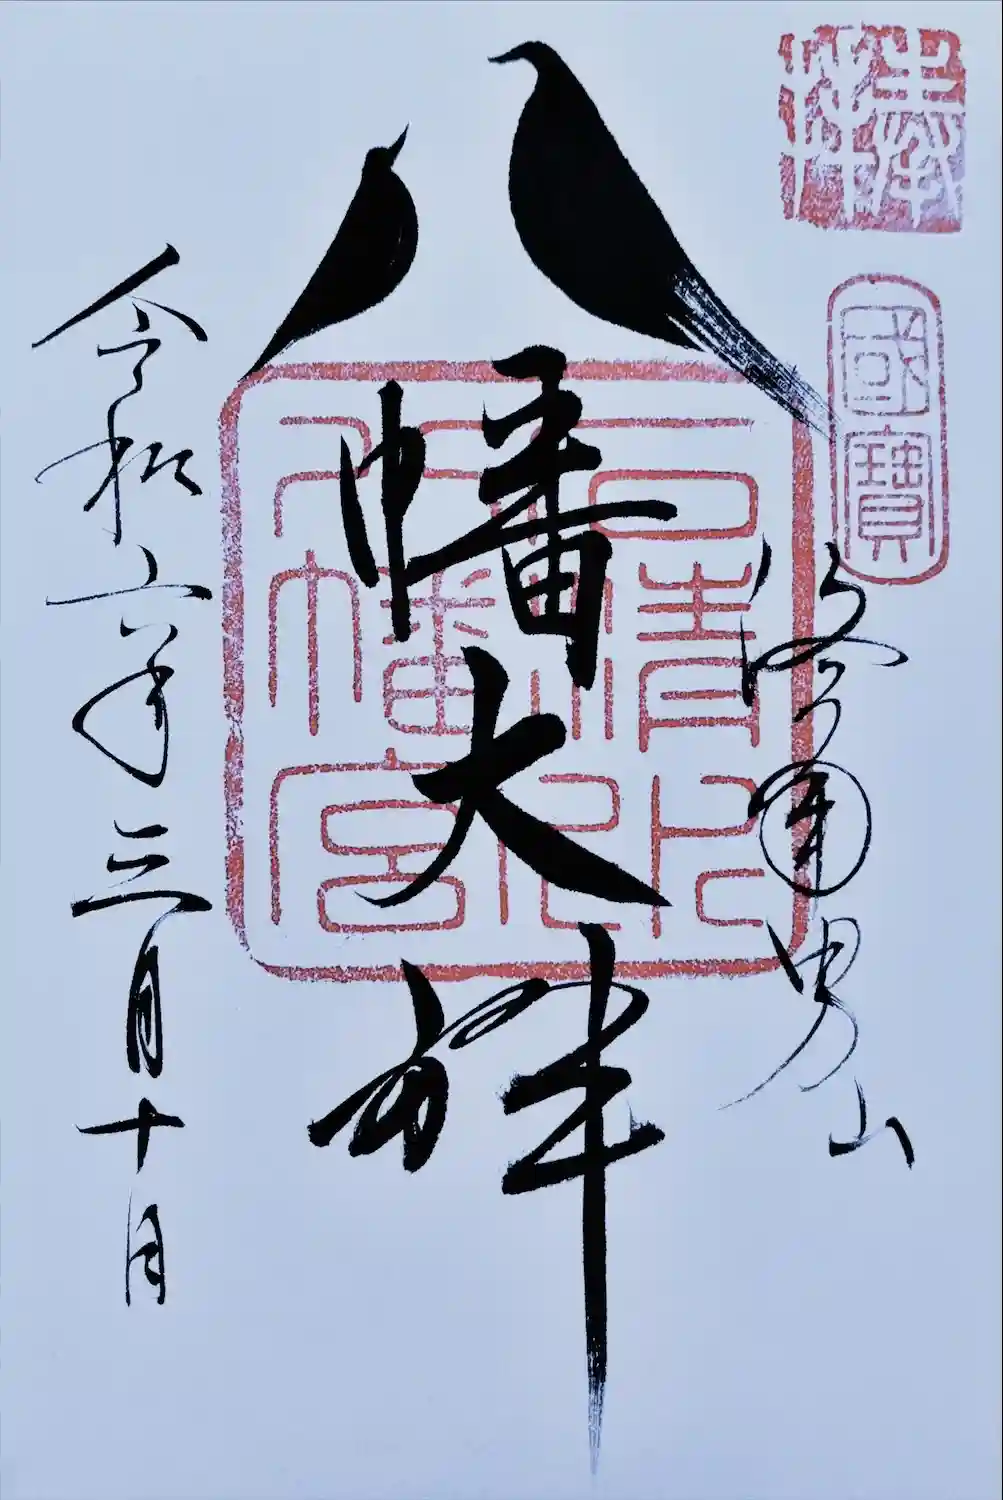 奉拝
國寶
洛南男山
八幡大神
石清水八幡宮
令和六年三月十日